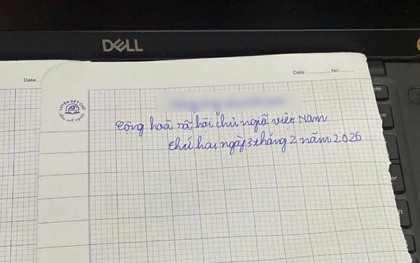 DELL
Date:
Date: No:
Cộng hoà xã hôi chủ nghĩă viêt Nam
Thứ hai ngày 3 tháng 2 năm 2026